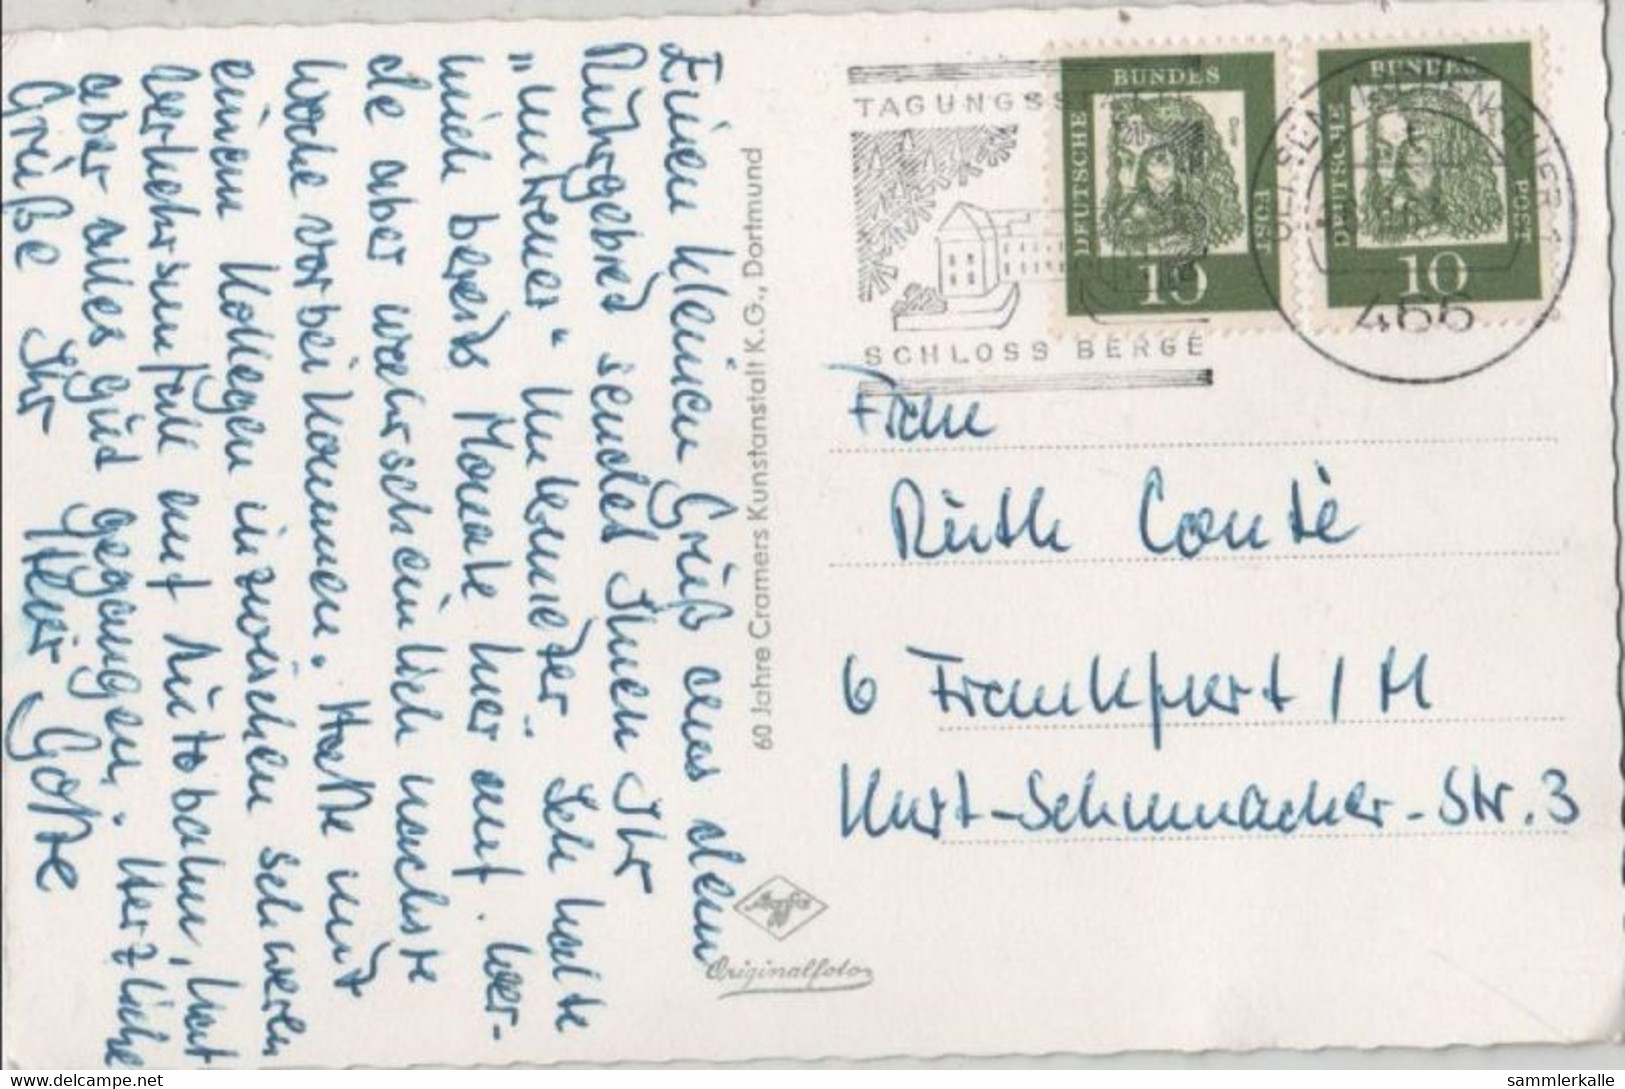 Einen kleinen Gruß aus dem
Ruhrgebiet sendet Ihnen Ihr
„Untreuer“ Unkemieder. Ich halte
mich bereits Monate hier auf. Wer-
de aber wahrscheinlich nächste
Woche vorbeikommen. Hatte mit
einem Kollegen inzwischen schweren
Verkehrsunfall auf Autobahn, hat
aber alles gut gegangen. Herzliche
Grüße Ihr
60 Jahre Cramers Kunstanstalt K.G., Dortmund
Agfa
Originalfoto
TAGUNGSSTÄTTE
SCHLOSS BERGE
DEUTSCHE BUNDES POST
10
DEUTSCHE BUNDES POST
10
GELSENKIRCHEN-BUER 1
466
Frau
Ruth Conté
6 Frankfurt / M
Kurt-Schumacher-Str. 3
sammlerkalle